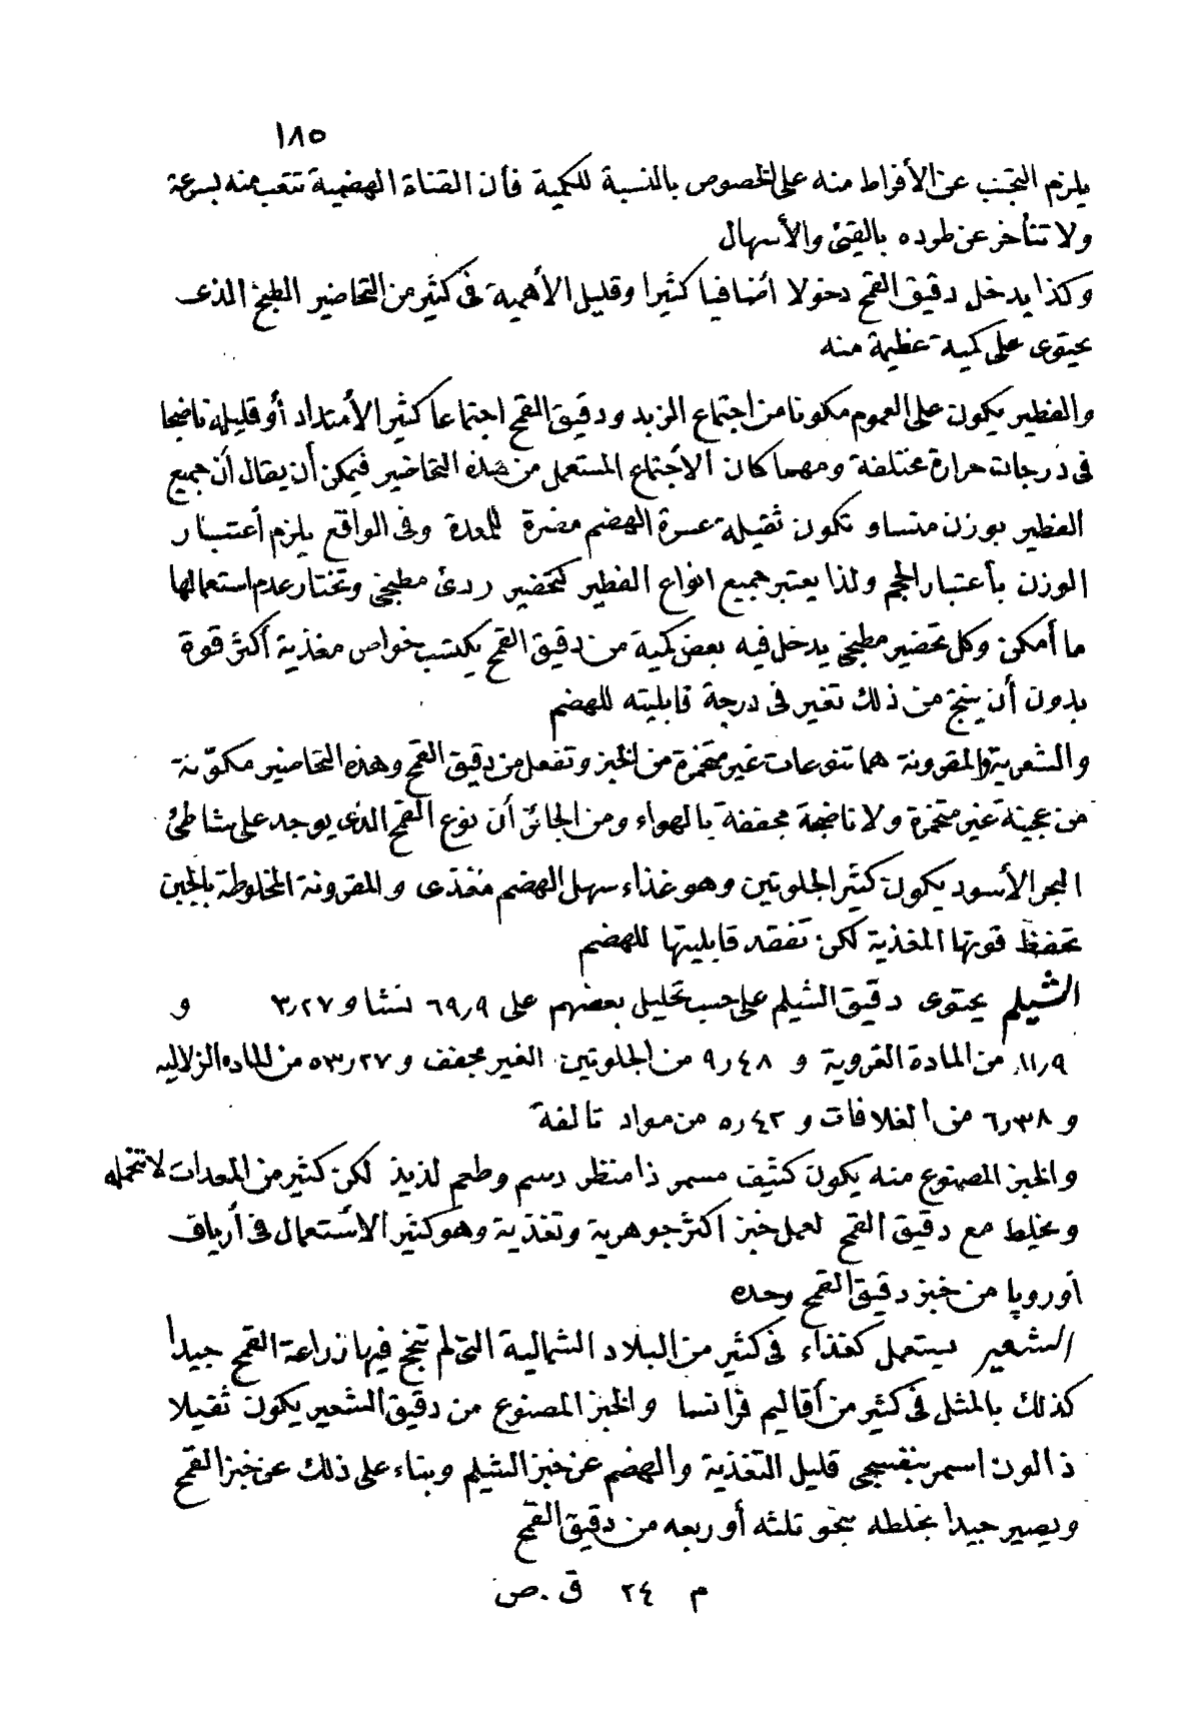 ١٨٥
يلزم التجنب عن الأفراط منه على الخصوص بالنسبة للكمية فأن القناة الهضمية تتعب منه بسرعة
ولا تتأخر عن طرده بالقيئ والأسهال
وكذا يدخل دقيق القمح دخولا أضافيا كثيرا وقليل الأهمية فى كثير من التحاضير الطبخ الذى
يحتوى على كمية عظيمة منه
والفطير يكون على العموم مكونا من اجتماع الزبد ودقيق القمح اجتماعا كثير الأمتداد أو قليله ناضجا
فى درجات حرارة مختلفة ومهما كان الأجتماع المستعمل من هذه التحاضير فيمكن أن يقال أن جميع
الفطير بوزن متساو تكون ثقيلة عسرة الهضم مضرة للمعدة وفى الواقع يلزم أعتبار
الوزن بأعتبار الحجم ولذا يعتبر جميع انواع الفطير كتحضير ردئ مطبخى وتختار عدم استعمالها
ما أمكن وكل تحضير مطبخى يدخل فيه بعض كمية من دقيق القمح يكتسب خواص مغذية أكثر قوة
بدون أن ينتج من ذلك تغير فى درجة قابليته للهضم
والشعرية والمقرونة هما تنوعات غير متخمرة من الخبز وتفعل من دقيق القمح وهذه التحاضير مكوّنة
من عجينة غير متخمرة ولا ناضجة مجففة بالهواء ومن الجائز أن نوع القمح الذى يوجد على شاطئ
البحر الأسود يكون كثير الجلوتين وهو غذاء سهل الهضم مغذى والمقرونة المخلوطة بالجبن
تحفظ قوتها المغذية لكن تفقد قابليتها للهضم
الشيلم يحتوى دقيق الشيلم على حسب تحليل بعضهم على ٦٩٫٩ نشا و ٣٫٢٧ و
١١٫٩ من المادة الغروية و ٩٫٤٨ من الجلوتين الغير مجفف و ٥٣٫٢٧ من المادة الزلاليه
و ٦٫٣٨ من الغلافات و ٥٫٤٢ من مواد تالفة
والخبز المصنوع منه يكون كثيف مسمر ذا منظر دسم وطعم لذيذ لكن كثير من المعدات لا تتحمله
ويخلط مع دقيق القمح لعمل خبز اكثر جوهرية وتغذية وهو كثير الأستعمال فى أرياف
أوروپا من خبز دقيق القمح وحده
الشعير يستعمل كغذاء فى كثير من البلاد الشمالية التى لم تنجح فيها زراعة القمح جيدا
كذلك بالمثل فى كثير من أقاليم فرانسا والخبز المصنوع من دقيق الشعير يكون ثقيلا
ذا لون اسمر بنفسجى قليل التغذية والهضم عن خبز الشيلم وبناء على ذلك عن خبز القمح
ويصير جيدا بخلطه بنحو ثلثه أو ربعه من دقيق القمح
م ٢٤ ق.ص